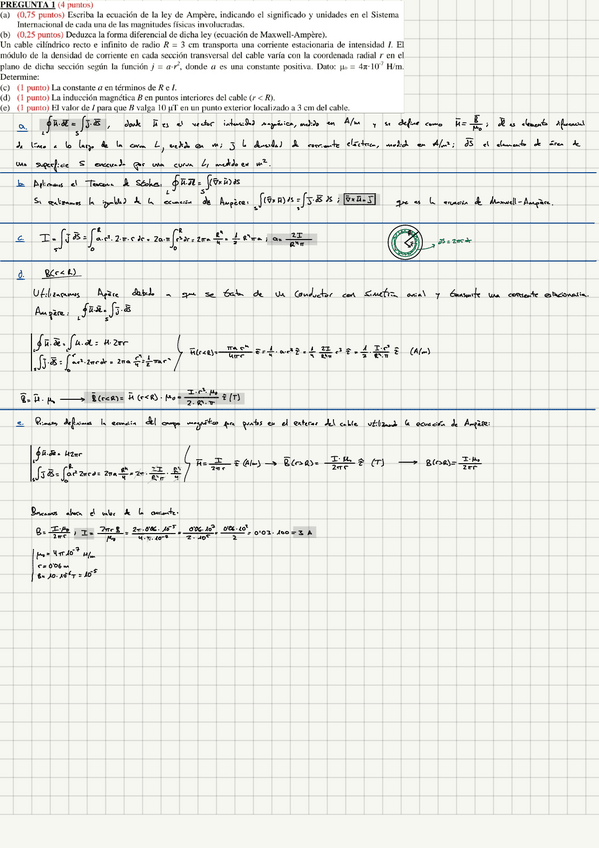 PREGUNTA 1 (4 puntos)
(a) (0,75 puntos) Escriba la ecuación de la ley de Ampère, indicando el significado y unidades en el Sistema
Internacional de cada una de las magnitudes físicas involucradas.
(b) (0,25 puntos) Deduzca la forma diferencial de dicha ley (ecuación de Maxwell-Ampère).
Un cable cilíndrico recto e infinito de radio R = 3 cm transporta una corriente estacionaria de intensidad I. El
módulo de la densidad de corriente en cada sección transversal del cable varía con la coordenada radial r en el
plano de dicha sección según la función j = a·r², donde a es una constante positiva. Dato: μ₀ = 4π·10⁻⁷ H/m.
Determine:
(c) (1 punto) La constante a en términos de R e I.
(d) (1 punto) La inducción magnética B en puntos interiores del cable (r < R).
(e) (1 punto) El valor de I para que B valga 10 μT en un punto exterior localizado a 3 cm del cable.
a. ∮ H·dl = ∫ J·dS, donde H es el vector intensidad magnética, medido en A/m y se define como H = B/μ₀; dl es elemento diferencial
de línea a lo largo de la curva L, medido en m; J la densidad de corriente eléctrica, medida en A/m²; dS el elemento de área de
una superficie S encerrada por una curva L, medido en m².
b. Aplicamos el Teorema de Stokes: ∮ H·dl = ∫(∇×H) dS
Si realizamos la igualdad de la ecuación de Ampère: ∫(∇×H) dS = ∫ J·dS ; ∇×H = J que es la ecuación de Maxwell-Ampère.
c. I = ∫ J dS = ∫ a·r²·2·π·r dr = 2a·π ∫ r³ dr = 2πa R⁴/4 = 1/2 R⁴πa ; a = 2I/R⁴π
dS = 2πr dr
d. B(r<R)
Utilizaremos Ampère debido a que se trata de un conductor con simetría axial y transporta una corriente estacionaria.
Ampère: ∮ H·dl = ∫ J·dS
∮ H·dl = ∫ H·dl = H·2πr
∫ J·dS = ∫ ar²·2πr dr = 2πa r⁴/4 = 1/2 πar⁴
B = H·μ₀ → B(r<R) = H(r<R)·μ₀ = I·r³·μ₀/2·R⁴·π (T)
e. Primero definimos la ecuación del campo magnético para puntos en el exterior del cable utilizando la ecuación de Ampère:
∮ H·dl = H2πr
H = I/2πr (A/m) → B(r>R) = I·μ₀/2πr (T) → B(r>R) = I·μ₀/2πr
Buscamos ahora el valor de la corriente.
B = I·μ₀/2πr ; I = 2πr B/μ₀ = 2π·0'06·10⁻⁵/4·π·10⁻⁷ = 0'06·10²/2 = 0'03·100 = 3 A
μ₀ = 4π10⁻⁷ H/m
r = 0'06 m
B = 10·10⁻⁶ T = 10⁻⁵